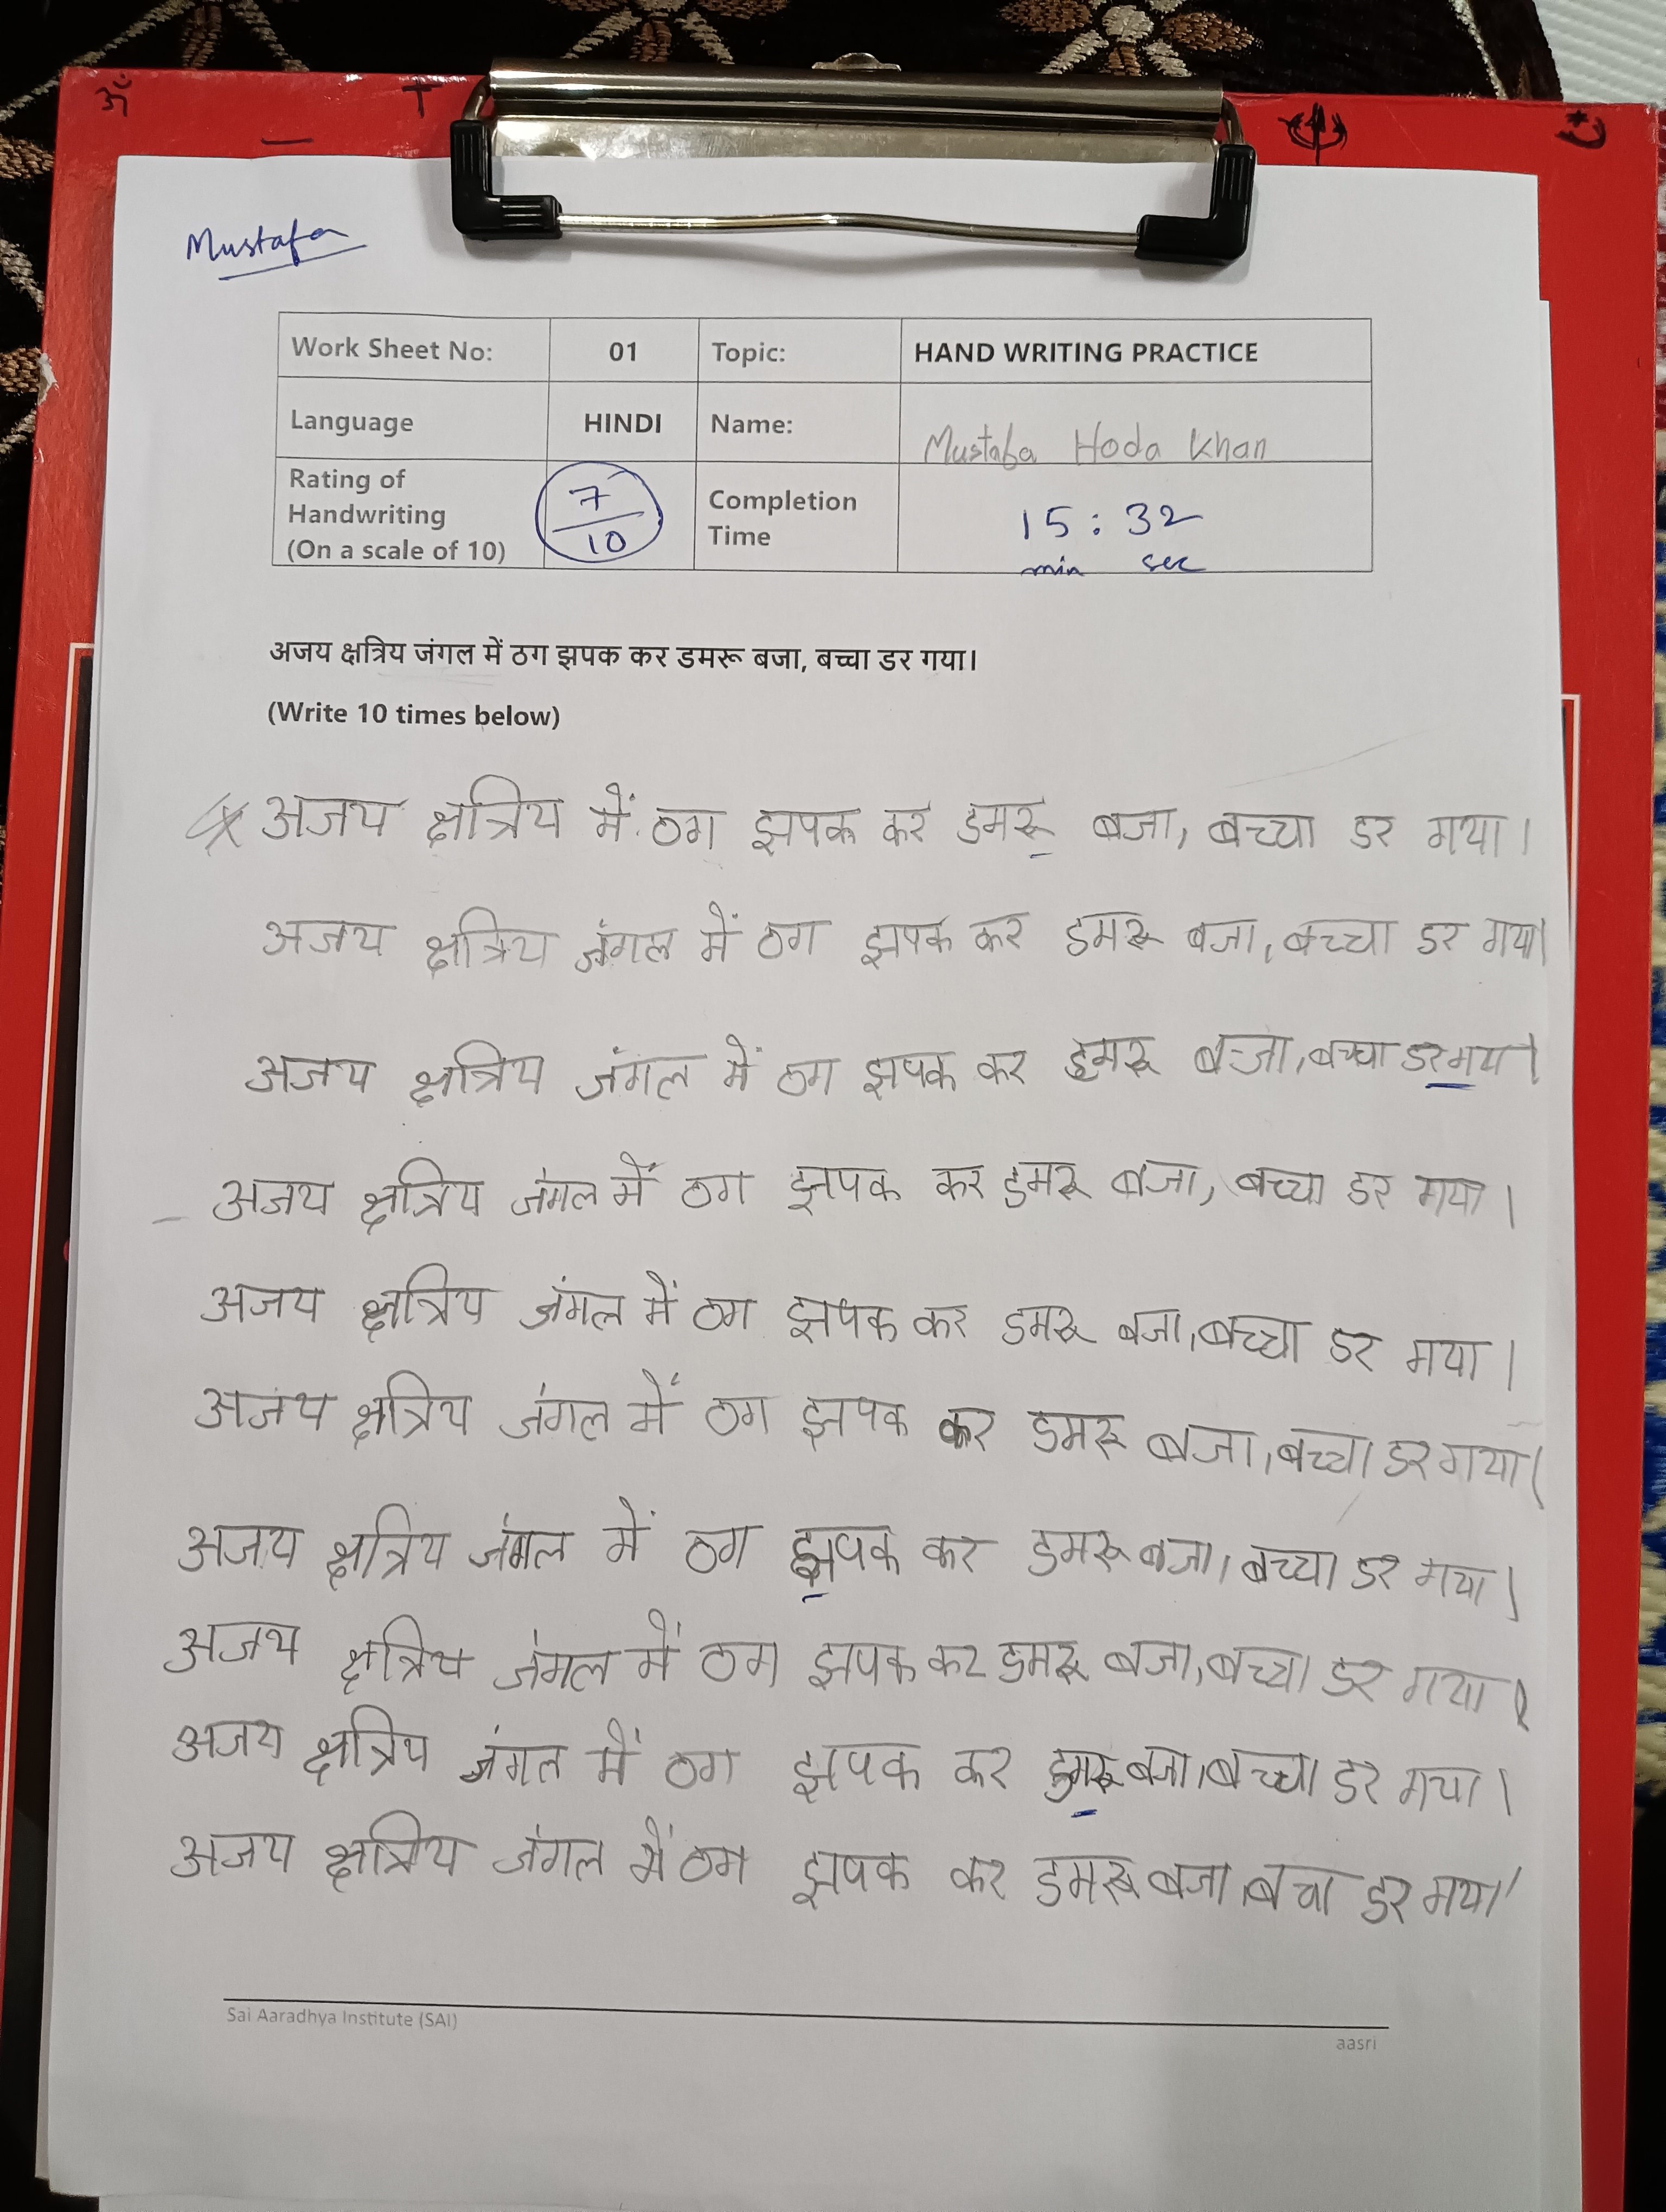 ॐ
Mustafa
Work Sheet No: 01 Topic: HAND WRITING PRACTICE
Language HINDI Name: Mustafa Hoda Khan
Rating of Handwriting (On a scale of 10) 7/10 Completion Time 15 : 32 min sec
अजय क्षत्रिय जंगल में ठग झपक कर डमरू बजा, बच्चा डर गया।
(Write 10 times below)
अजय क्षत्रिय में ठग झपक कर डमरू बजा, बच्चा डर गया।
अजय क्षत्रिय जंगल में ठग झपक कर डमरू बजा, बच्चा डर गया।
अजय क्षत्रिय जंगल में ठग झपक कर डमरू बजा, बच्चा डर गय।
अजय क्षत्रिय जंगल में ठग झपक कर डमरू बजा, बच्चा डर गया।
अजय क्षत्रिय जंगल में ठग झपक कर डमरू बजा, बच्चा डर गया।
अजय क्षत्रिय जंगल में ठग झपक कर डमरू बजा, बच्चा डर गया।
अजय क्षत्रिय जंगल में ठग झपक कर डमरू बजा, बच्चा डर गया।
अजय क्षत्रिय जंगल में ठग झपक कर डमरू बजा, बच्चा डर गया।
अजय क्षत्रिय जंगल में ठग झपक कर डमरू बजा, बच्चा डर गया।
अजय क्षत्रिय जंगल में ठग झपक कर डमरू बजा, बचा डर गया।
Sai Aaradhya Institute (SAI)
aasri